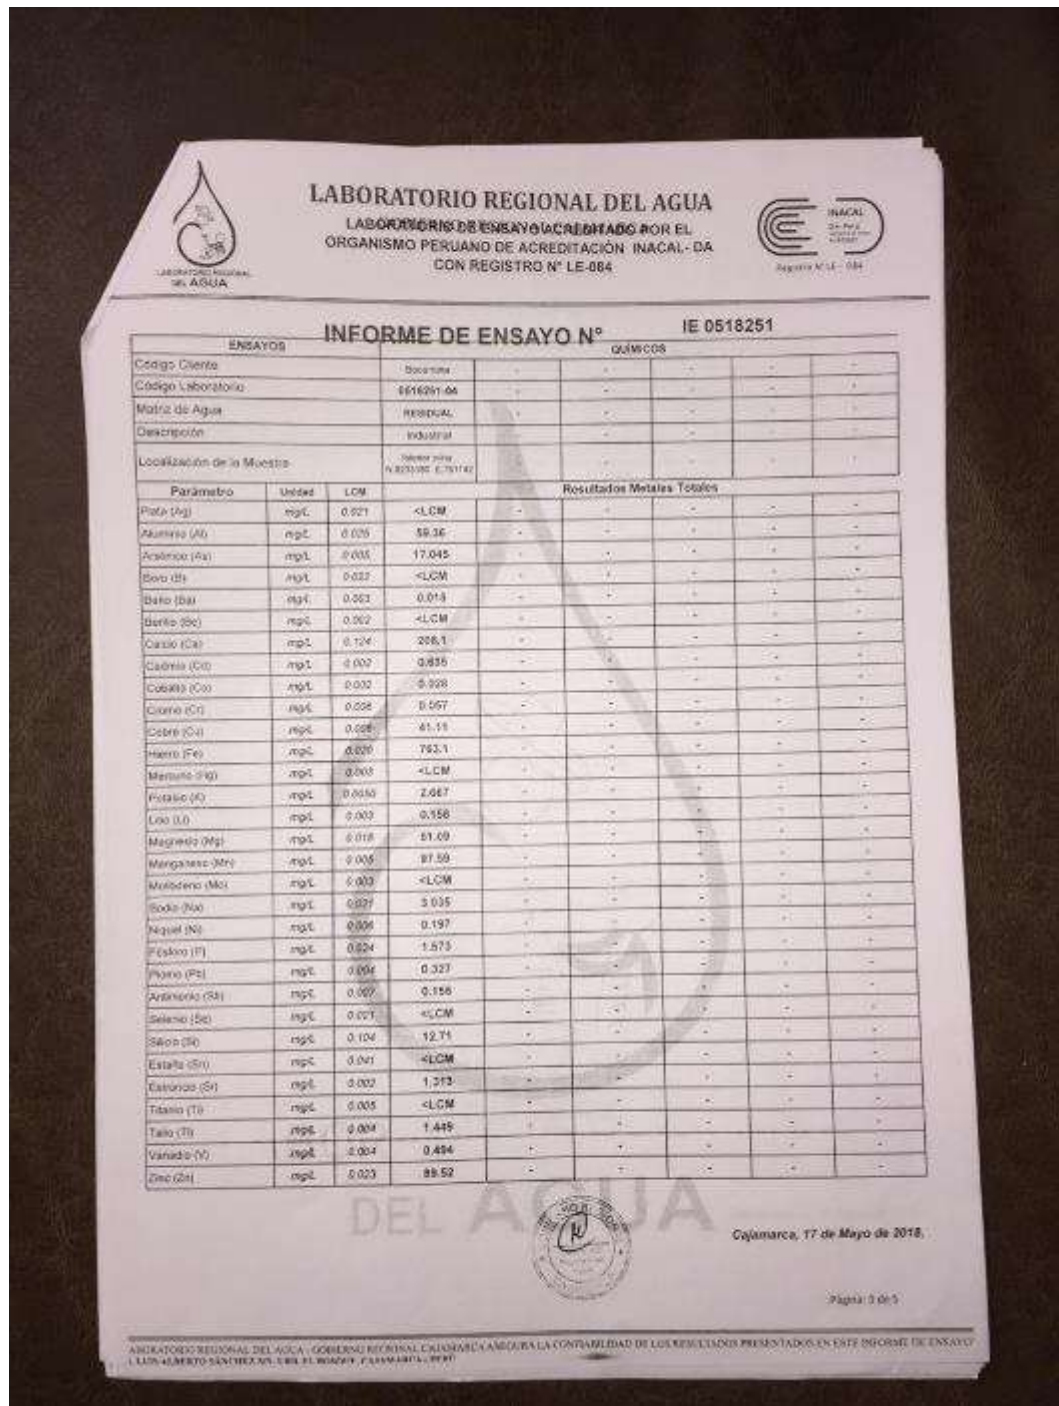 LABORATORIO REGIONAL DEL AGUA
LABORATORIO DE ENSAYO ACREDITADO POR EL
ORGANISMO PERUANO DE ACREDITACIÓN INACAL- DA
CON REGISTRO N° LE-084
LABORATORIO REGIONAL
DEL AGUA
INACAL
DA - Perú
Registro N° LE - 084
INFORME DE ENSAYO N° IE 0518251
ENSAYOS QUÍMICOS
Código Cliente Bocamina - - - - -
Código Laboratorio 0518251-04 - - - - -
Matriz de Agua RESIDUAL - - - - -
Descripción Industrial - - - - -
Localización de la Muestra - - - - -
Parámetro Unidad LCM Resultados Metales Totales
Plata (Ag) mg/L 0.021 <LCM - - - - -
Aluminio (Al) mg/L 0.025 59.36 - - - - -
Arsénico (As) mg/L 0.005 17.045 - - - - -
Boro (B) mg/L <LCM - - - - -
Bario (Ba) mg/L 0.003 - - - - -
Berilio (Be) mg/L 0.002 <LCM - - - - -
Calcio (Ca) mg/L 0.124 208.1 - - - - -
Cadmio (Cd) mg/L 0.002 0.635 - - - - -
Cobalto (Co) mg/L 0.002 - - - - -
Cromo (Cr) mg/L 0.057 - - - - -
Cobre (Cu) mg/L 41.11 - - - - -
Hierro (Fe) mg/L 0.020 763.1 - - - - -
Mercurio (Hg) mg/L 0.003 <LCM - - - - -
Potasio (K) mg/L 2.667 - - - - -
Litio (Li) mg/L 0.003 0.156 - - - - -
Magnesio (Mg) mg/L 0.018 51.09 - - - - -
Manganeso (Mn) mg/L 0.005 97.59 - - - - -
Molibdeno (Mo) mg/L 0.003 <LCM - - - - -
Sodio (Na) mg/L 0.021 3.035 - - - - -
Níquel (Ni) mg/L 0.006 0.197 - - - - -
Fósforo (P) mg/L 0.024 1.573 - - - - -
Plomo (Pb) mg/L 0.004 0.327 - - - - -
Antimonio (Sb) mg/L 0.156 - - - - -
Selenio (Se) mg/L 0.021 <LCM - - - - -
Silicio (Si) mg/L 0.104 12.71 - - - - -
Estaño (Sn) mg/L 0.041 <LCM - - - - -
Estroncio (Sr) mg/L 0.002 1.313 - - - - -
Titanio (Ti) mg/L 0.005 <LCM - - - - -
Talio (Tl) mg/L 0.004 1.449 - - - - -
Vanadio (V) mg/L 0.004 0.494 - - - - -
Zinc (Zn) mg/L 0.023 89.52 - - - - -
DEL AGUA
Cajamarca, 17 de Mayo de 2018.
Página: 3 de 5
LABORATORIO REGIONAL DEL AGUA - GOBIERNO REGIONAL CAJAMARCA ASEGURA LA CONFIABILIDAD DE LOS RESULTADOS PRESENTADOS EN ESTE INFORME DE ENSAYO
LUIS ALBERTO SÁNCHEZ S/N. URB. EL BOSQUE, CAJAMARCA - PERÚ